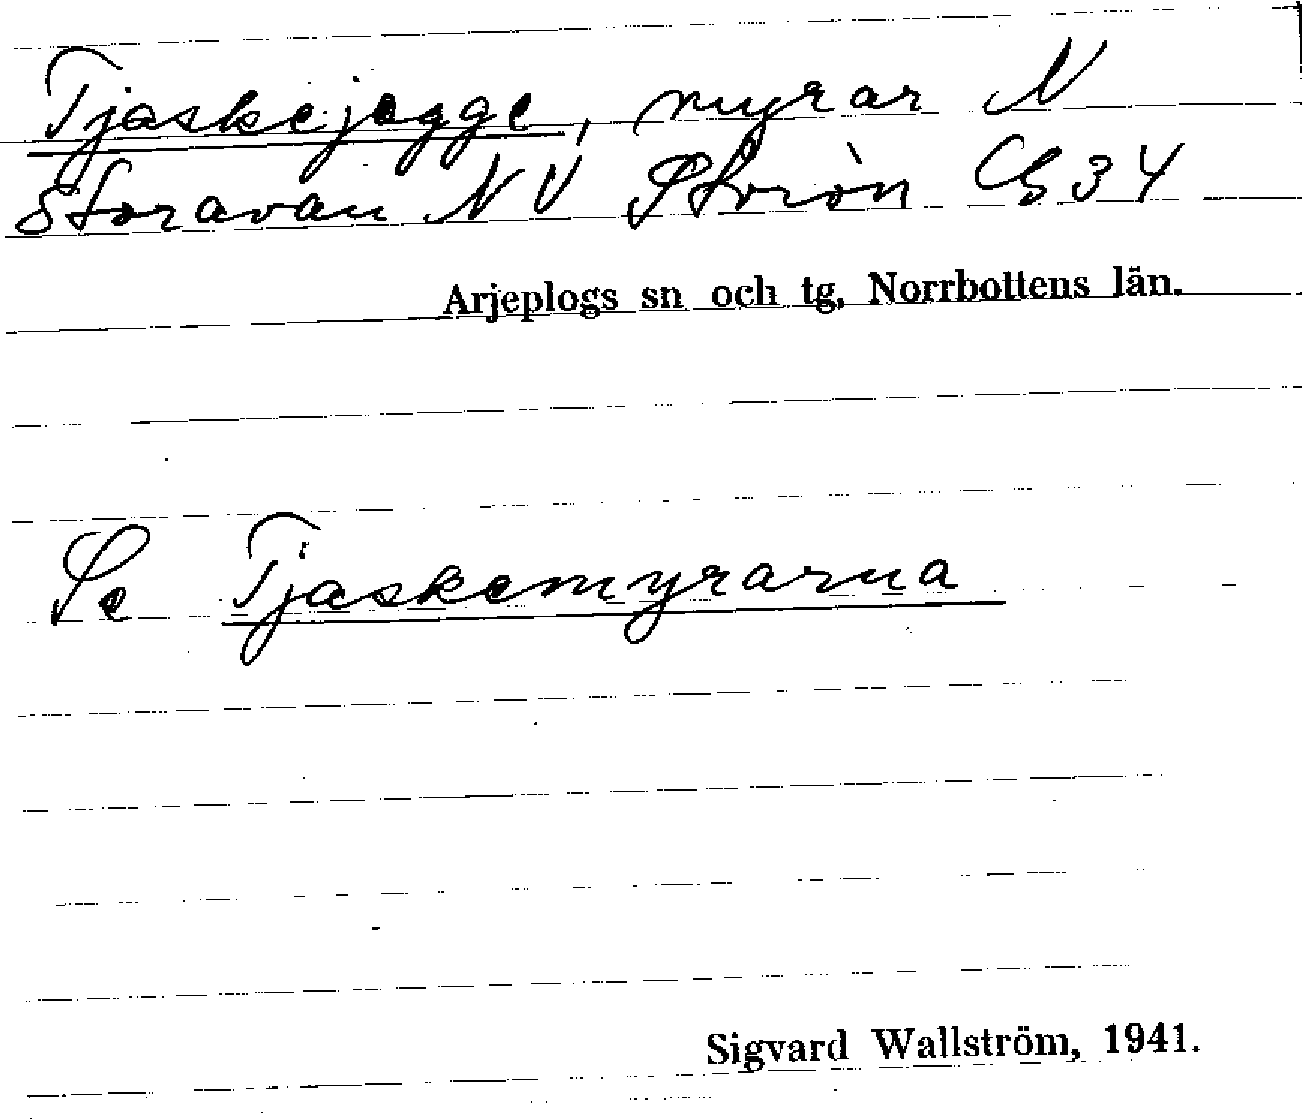 Tjaskejegge, myrar N
Storavan NV Storön C G34
Arjeplogs sn och tg, Norrbottens län.
Se Tjaskemyrarna
Sigvard Wallström, 1941.